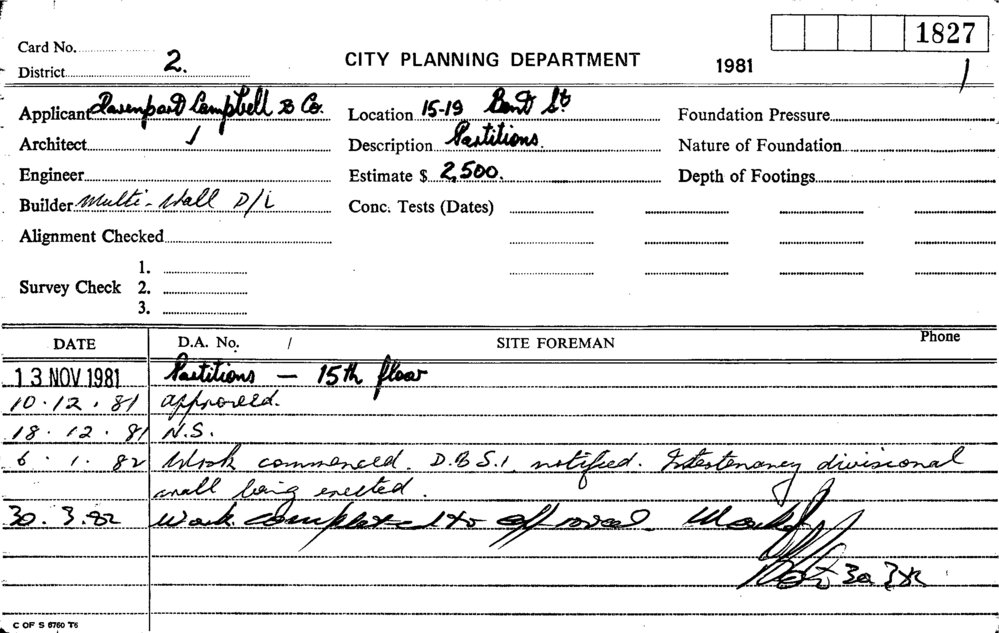 1827
Card No.
CITY PLANNING DEPARTMENT
1981
District 2.
Applicant Davenport Campbell & Co.
Location 15-19 Bent St.
Foundation Pressure
Architect
Description Partitions.
Nature of Foundation
Engineer
Estimate $ 2,500.
Depth of Footings
Builder Multi-Wall P/L
Conc. Tests (Dates)
Alignment Checked
1.
Survey Check 2.
3.
DATE D.A. No. / SITE FOREMAN Phone
13 NOV 1981 Partitions — 15th floor
10.12.81 approved.
18.12.81 N.S.
6.1.82 Work commenced. D.B.S.1. notified. Intertenancy divisional
wall being erected.
30.3.82 Work completed to approval.
30 3 82
C OF S 6760 T6